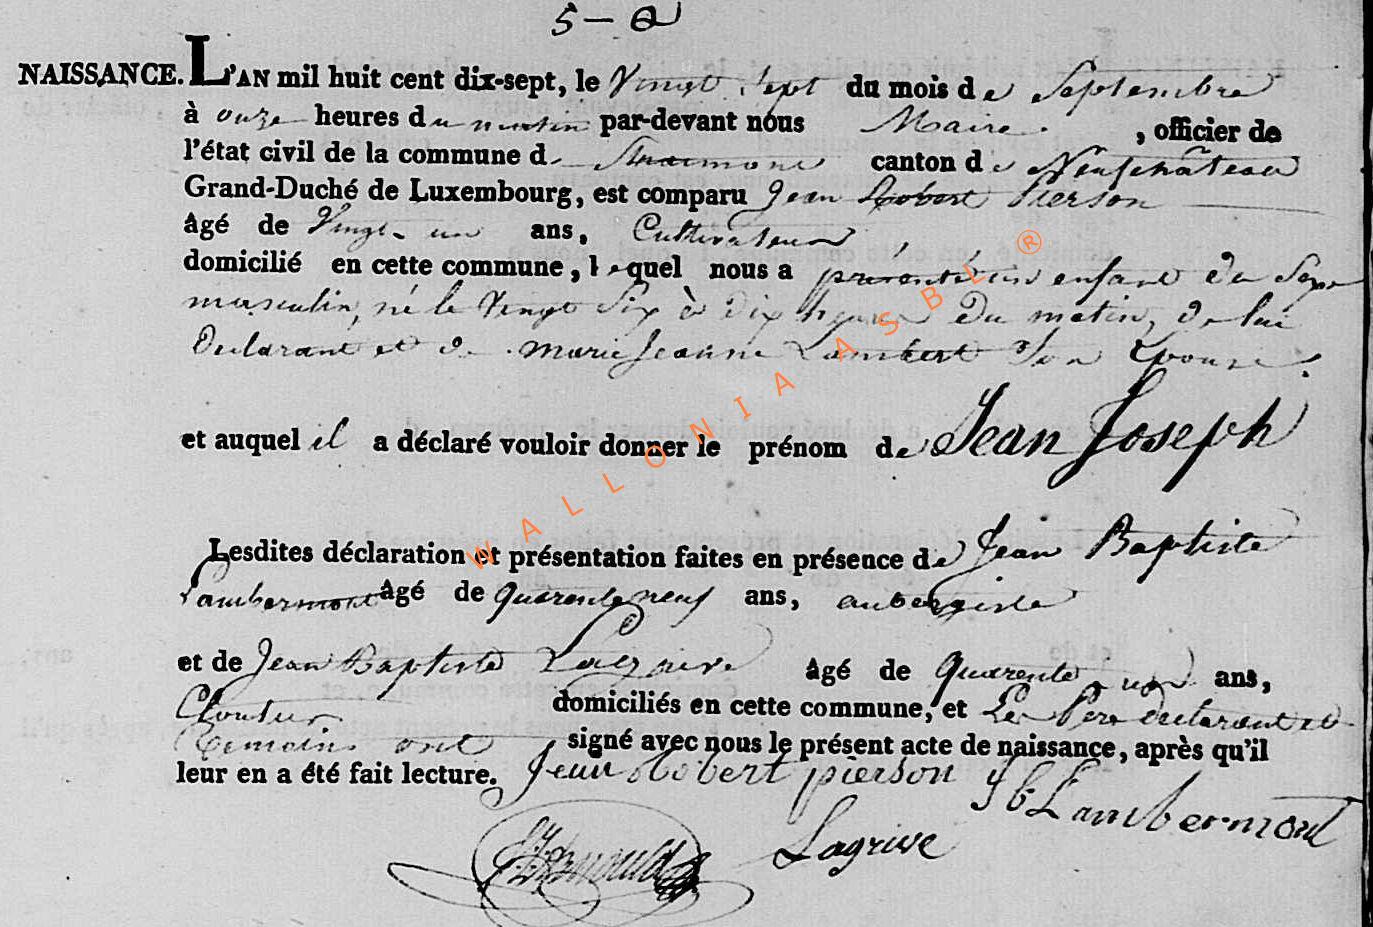 5 - a
NAISSANCE. L'AN mil huit cent dix-sept, le Vingt Sept du mois de Septembre
à onze heures du matin par-devant nous Maire , officier de
l'état civil de la commune de Straimont canton de Neufchâteau
Grand-Duché de Luxembourg, est comparu Jean Robert Pierson
âgé de Vingt-un ans, Cultivateur
domicilié en cette commune, lequel nous a presenté un enfant du Sexe
masculin, né le Vingt Six à dix heures du matin, de lui
Declarant et de marie Jeanne Lambert Son Epouse.
et auquel il a déclaré vouloir donner le prénom de Jean Joseph
Lesdites déclaration et présentation faites en présence de Jean Baptiste
Lambermont âgé de quarente neuf ans, aubergiste
et de Jean Baptiste Lagrive âgé de quarente un ans,
Cloutier domiciliés en cette commune, et Le Pere declarant et
Temoins ont signé avec nous le présent acte de naissance, après qu'il
leur en a été fait lecture. Jean Robert pierson Jb Lambermont
Lagrive
WALLONIA ASBL ®